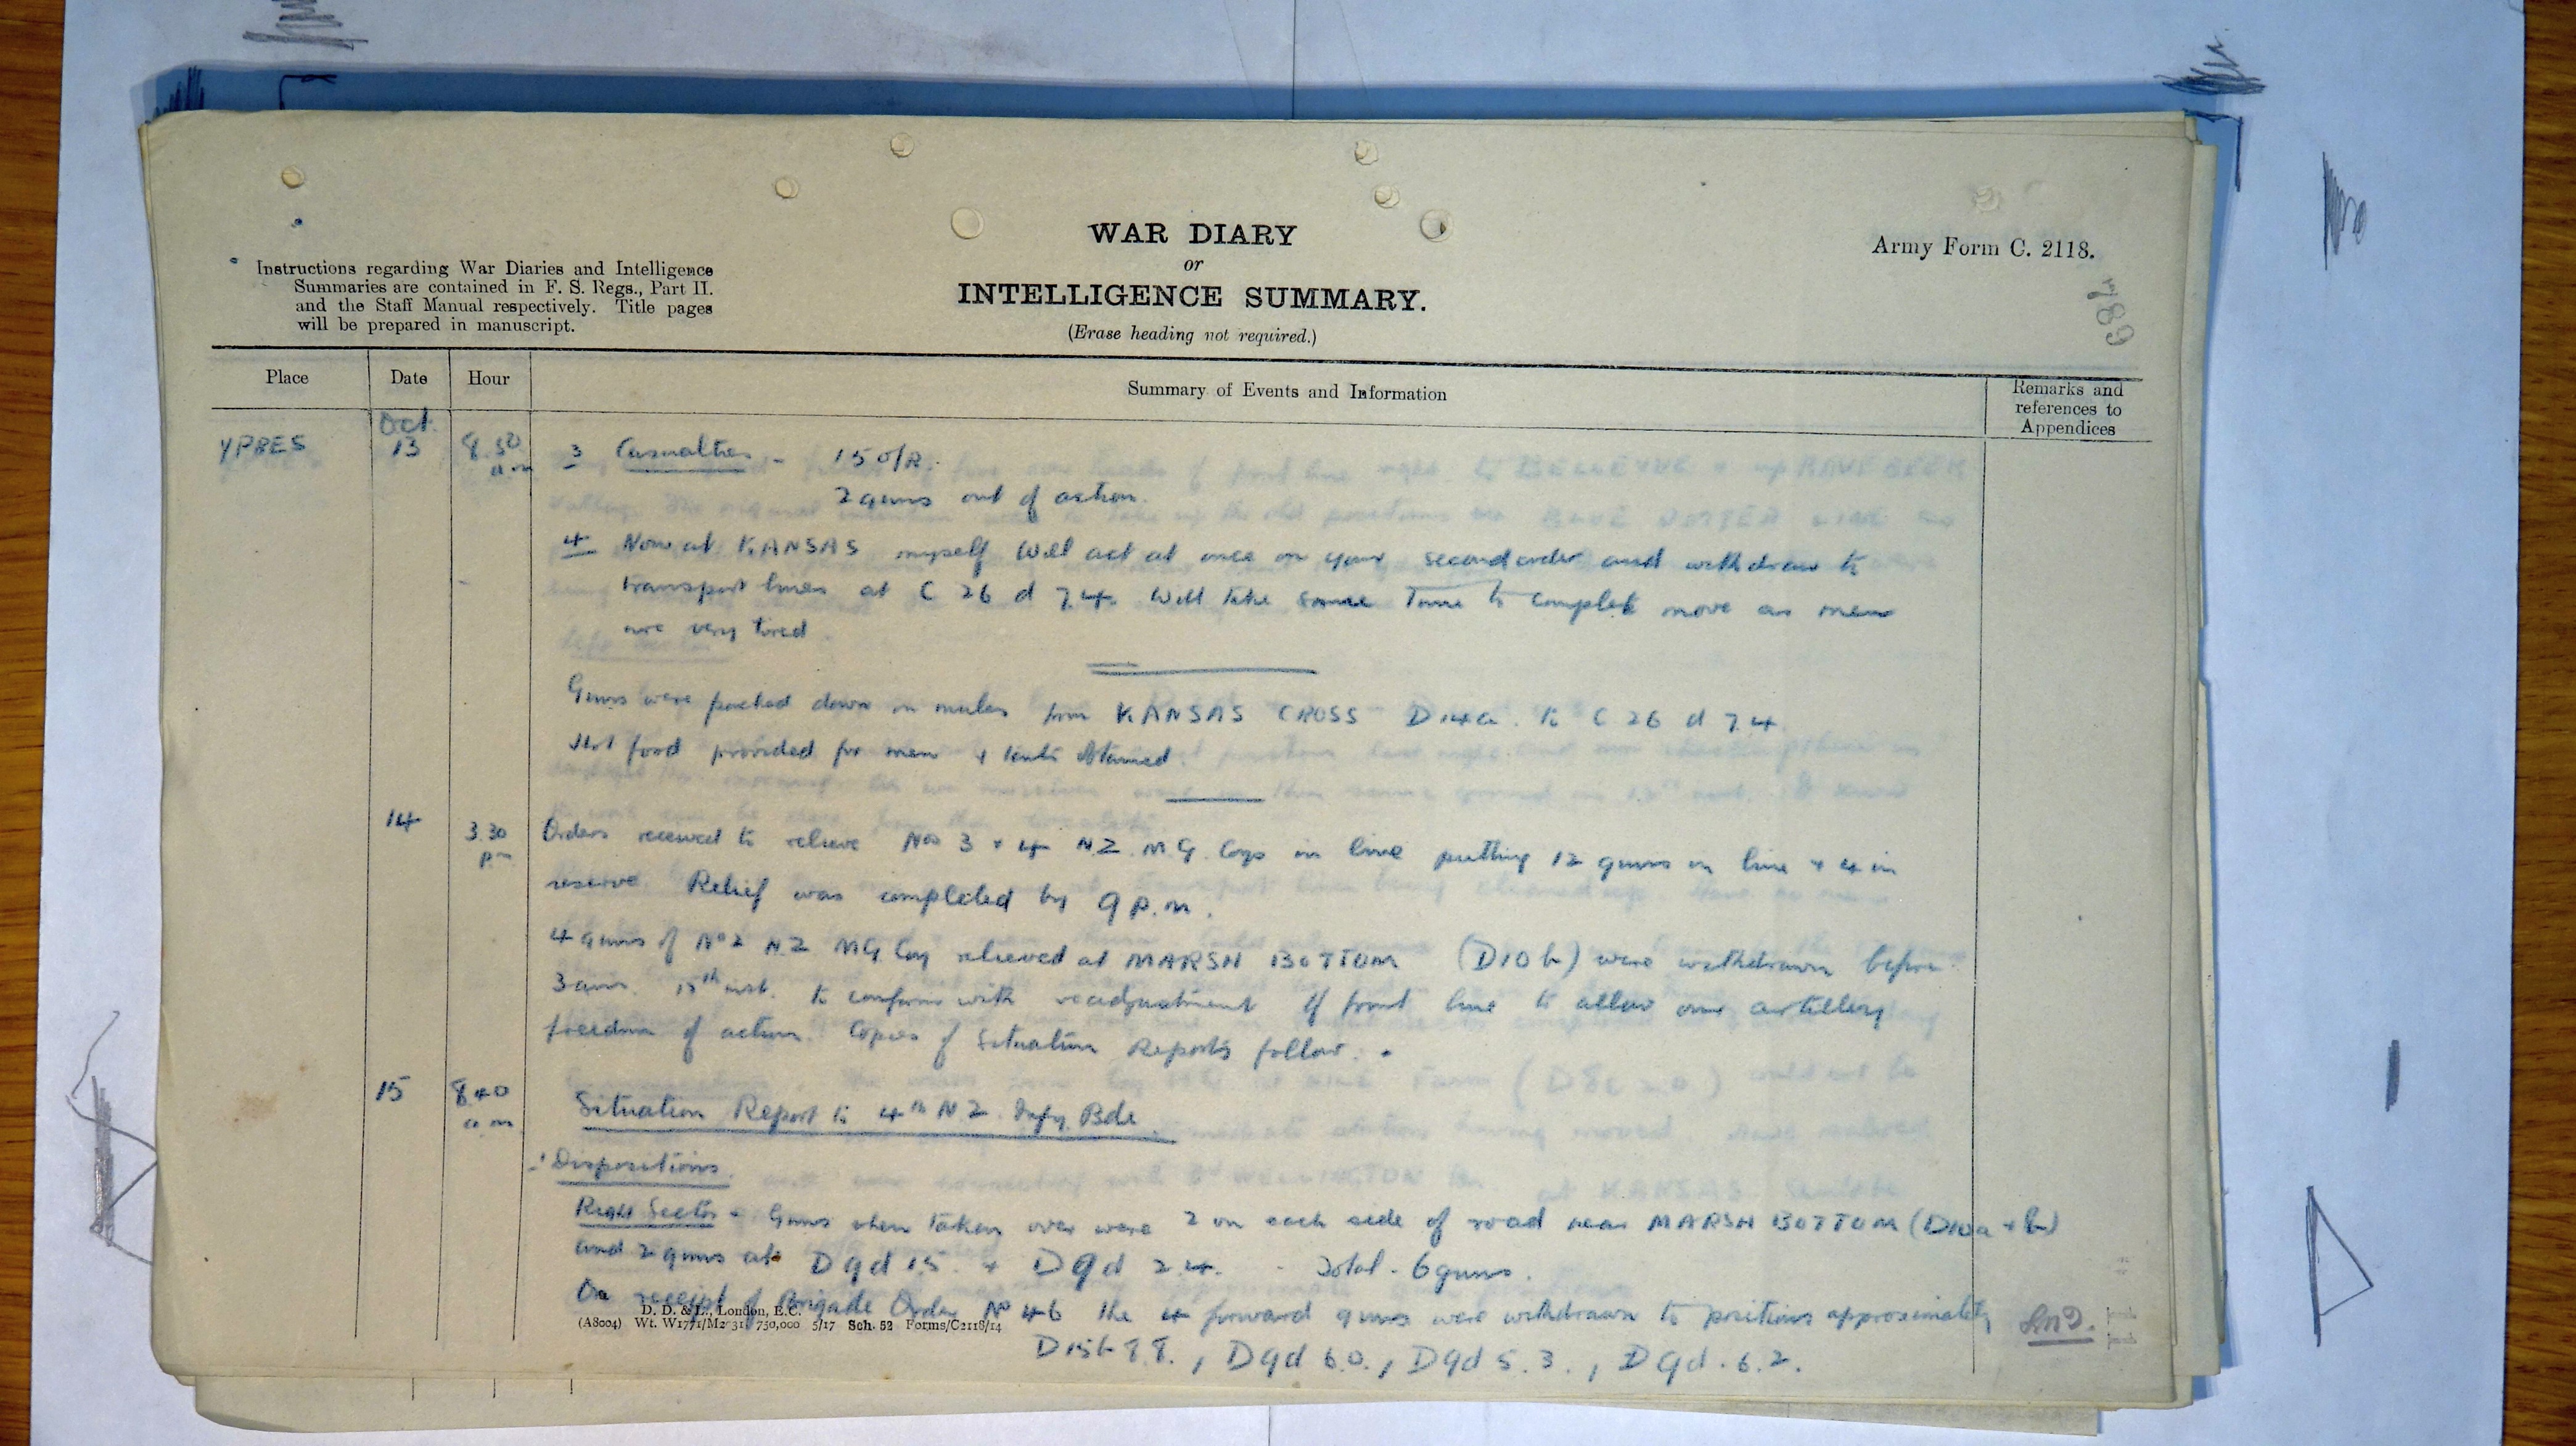 WAR DIARY
or
INTELLIGENCE SUMMARY.
(Erase heading not required.)
Army Form C. 2118.
Instructions regarding War Diaries and Intelligence
Summaries are contained in F. S. Regs., Part II.
and the Staff Manual respectively. Title pages
will be prepared in manuscript.
Place Date Hour Summary of Events and Information Remarks and references to Appendices
YPRES Oct. 13 8.50 a.m 3 Casualties - 15 O/R.
2 guns out of action.
4 Now at KANSAS myself Will act at once on your second order and withdraw to
transport lines at C 26 d 7.4. Will take some Time to complete move as men
are very tired.
Guns were packed down on mules from KANSAS CROSS D14a. to C 26 d 7.4.
Hot food provided for men + tents obtained.
14 3.30 pm Orders received to relieve Nos 3 + 4 N.Z. M.G. Coys in line putting 12 guns in line + 4 in
reserve. Relief was completed by 9 p.m.
4 guns of No 2 N.Z. MG Coy relieved at MARSH BOTTOM (D10b) were withdrawn before
3 am. 15th inst. to conform with readjustment of front line to allow our artillery
freedom of action. Copies of Situation Reports follow.
15 8.40 a.m Situation Report to 4th N.Z. Infy. Bde.
Dispositions.
Right Sector - Guns when taken over were 2 on each side of road near MARSH BOTTOM (D10a + b)
and 2 guns at D9d 1.5. + D9d 2.4. - Total - 6 guns.
On receipt of Brigade Order No 46 the 4 forward guns were withdrawn to positions approximately
D15b 8.8., D9d 6.0., D9d 5.3., D9d. 6.2.
D. D. & L., London, E.C.
(A8004) Wt. W1771/M2 31 750,000 5/17 Sch. 52 Forms/C2118/14